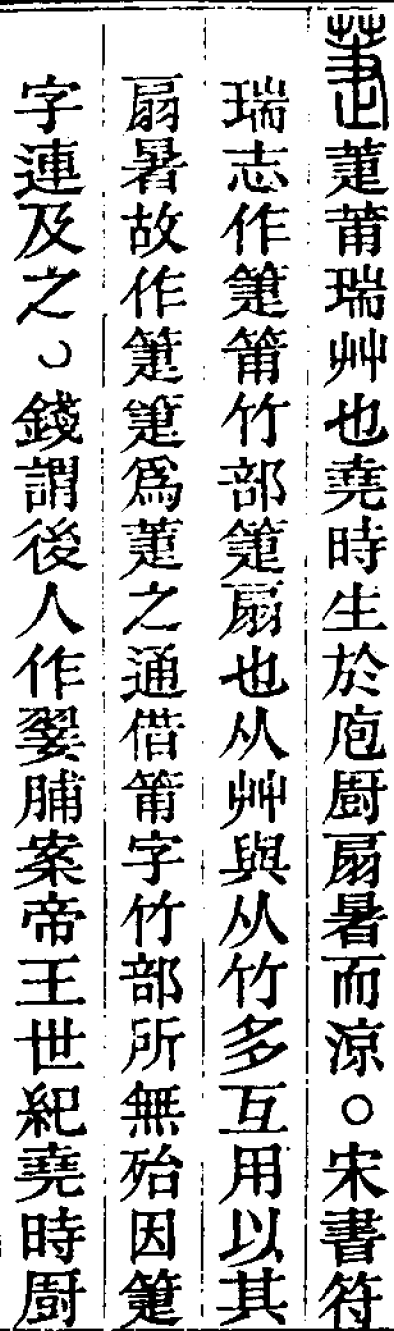 萐萐莆瑞艸也堯時生於庖廚扇暑而涼○宋書符
瑞志作箑箁竹部箑扇也从艸與从竹多互用以其
扇暑故作箑箑爲萐之通借箁字竹部所無殆因箑
字連及之㇁錢謂後人作翣脯案帝王世紀堯時廚